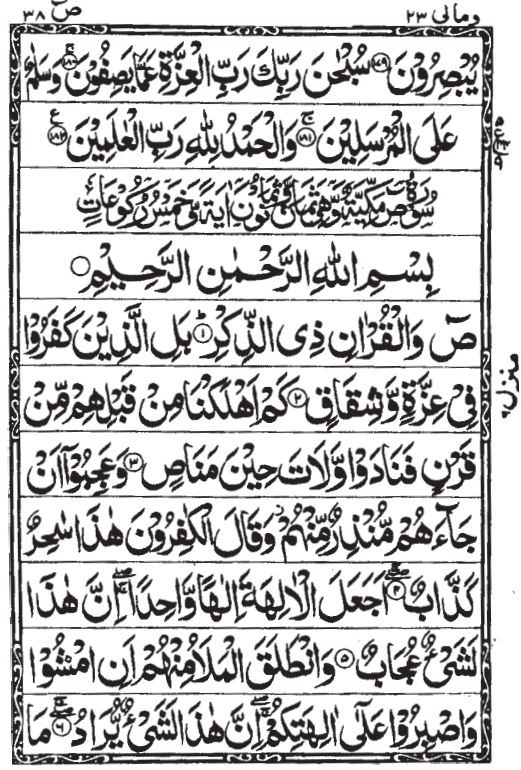 ومالی ۲۳
ص ۳۸
يُبْصِرُوْنَ ۝۱۷۹ سُبْحٰنَ رَبِّكَ رَبِّ الْعِزَّةِ عَمَّا يَصِفُوْنَ ۝۱۸۰ۚ وَسَلٰمٌ
عَلَى الْمُرْسَلِيْنَ ۝۱۸۱ۚ وَالْحَمْدُ لِلّٰهِ رَبِّ الْعٰلَمِيْنَ ۝۱۸۲
سُوْرَةُ صٓ مَكِّيَّةٌ وَّهِيَ ثَمَانٌ وَّثَمَانُوْنَ اٰيَةً وَّخَمْسُ رُكُوْعَاتٍ
بِسْمِ اللّٰهِ الرَّحْمٰنِ الرَّحِيْمِ ۝
صٓ وَالْقُرْاٰنِ ذِى الذِّكْرِ ۝۱ؕ بَلِ الَّذِيْنَ كَفَرُوْا
فِيْ عِزَّةٍ وَّشِقَاقٍ ۝۲ كَمْ اَهْلَكْنَا مِنْ قَبْلِهِمْ مِّنْ
قَرْنٍ فَنَادَوْا وَّلَاتَ حِيْنَ مَنَاصٍ ۝۳ وَعَجِبُوْۤا اَنْ
جَآءَهُمْ مُّنْذِرٌ مِّنْهُمْ ؗ وَقَالَ الْكٰفِرُوْنَ هٰذَا سٰحِرٌ
كَذَّابٌ ۝۴ۖۚ اَجَعَلَ الْاٰلِهَةَ اِلٰهًا وَّاحِدًا ۖۚ اِنَّ هٰذَا
لَشَيْءٌ عُجَابٌ ۝۵ وَانْطَلَقَ الْمَلَاُ مِنْهُمْ اَنِ امْشُوْا
وَاصْبِرُوْا عَلٰۤى اٰلِهَتِكُمْ ۖۚ اِنَّ هٰذَا لَشَيْءٌ يُّرَادُ ۝۶ۖۚ مَا
منزل ۶